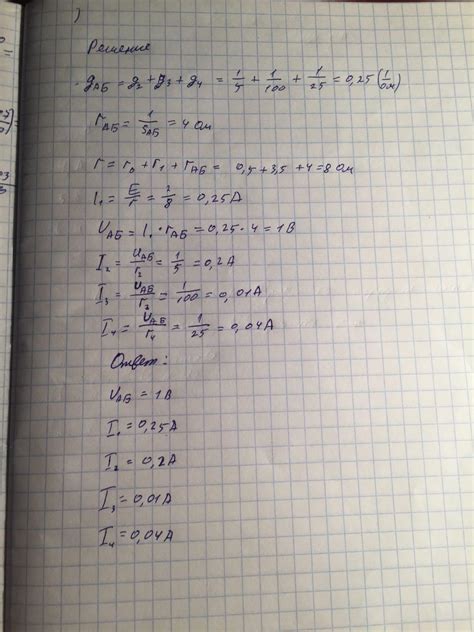 )
Решение
g_АБ = g₂ + g₃ + g₄ = 1/5 + 1/100 + 1/25 = 0,25 (1/ом)
r_АБ = 1/g_АБ = 4 ом
r = r₀ + r₁ + r_АБ = 0,5 + 3,5 + 4 = 8 ом
I₁ = E/r = 2/8 = 0,25А
U_АБ = I₁ · r_АБ = 0,25 · 4 = 1В
I₂ = U_АБ/r₂ = 1/5 = 0,2А
I₃ = U_АБ/r₂ = 1/100 = 0,01А
I₄ = U_АБ/r₄ = 1/25 = 0,04А
Ответ:
U_АБ = 1В
I₁ = 0,25А
I₂ = 0,2А
I₃ = 0,01А
I₄ = 0,04А